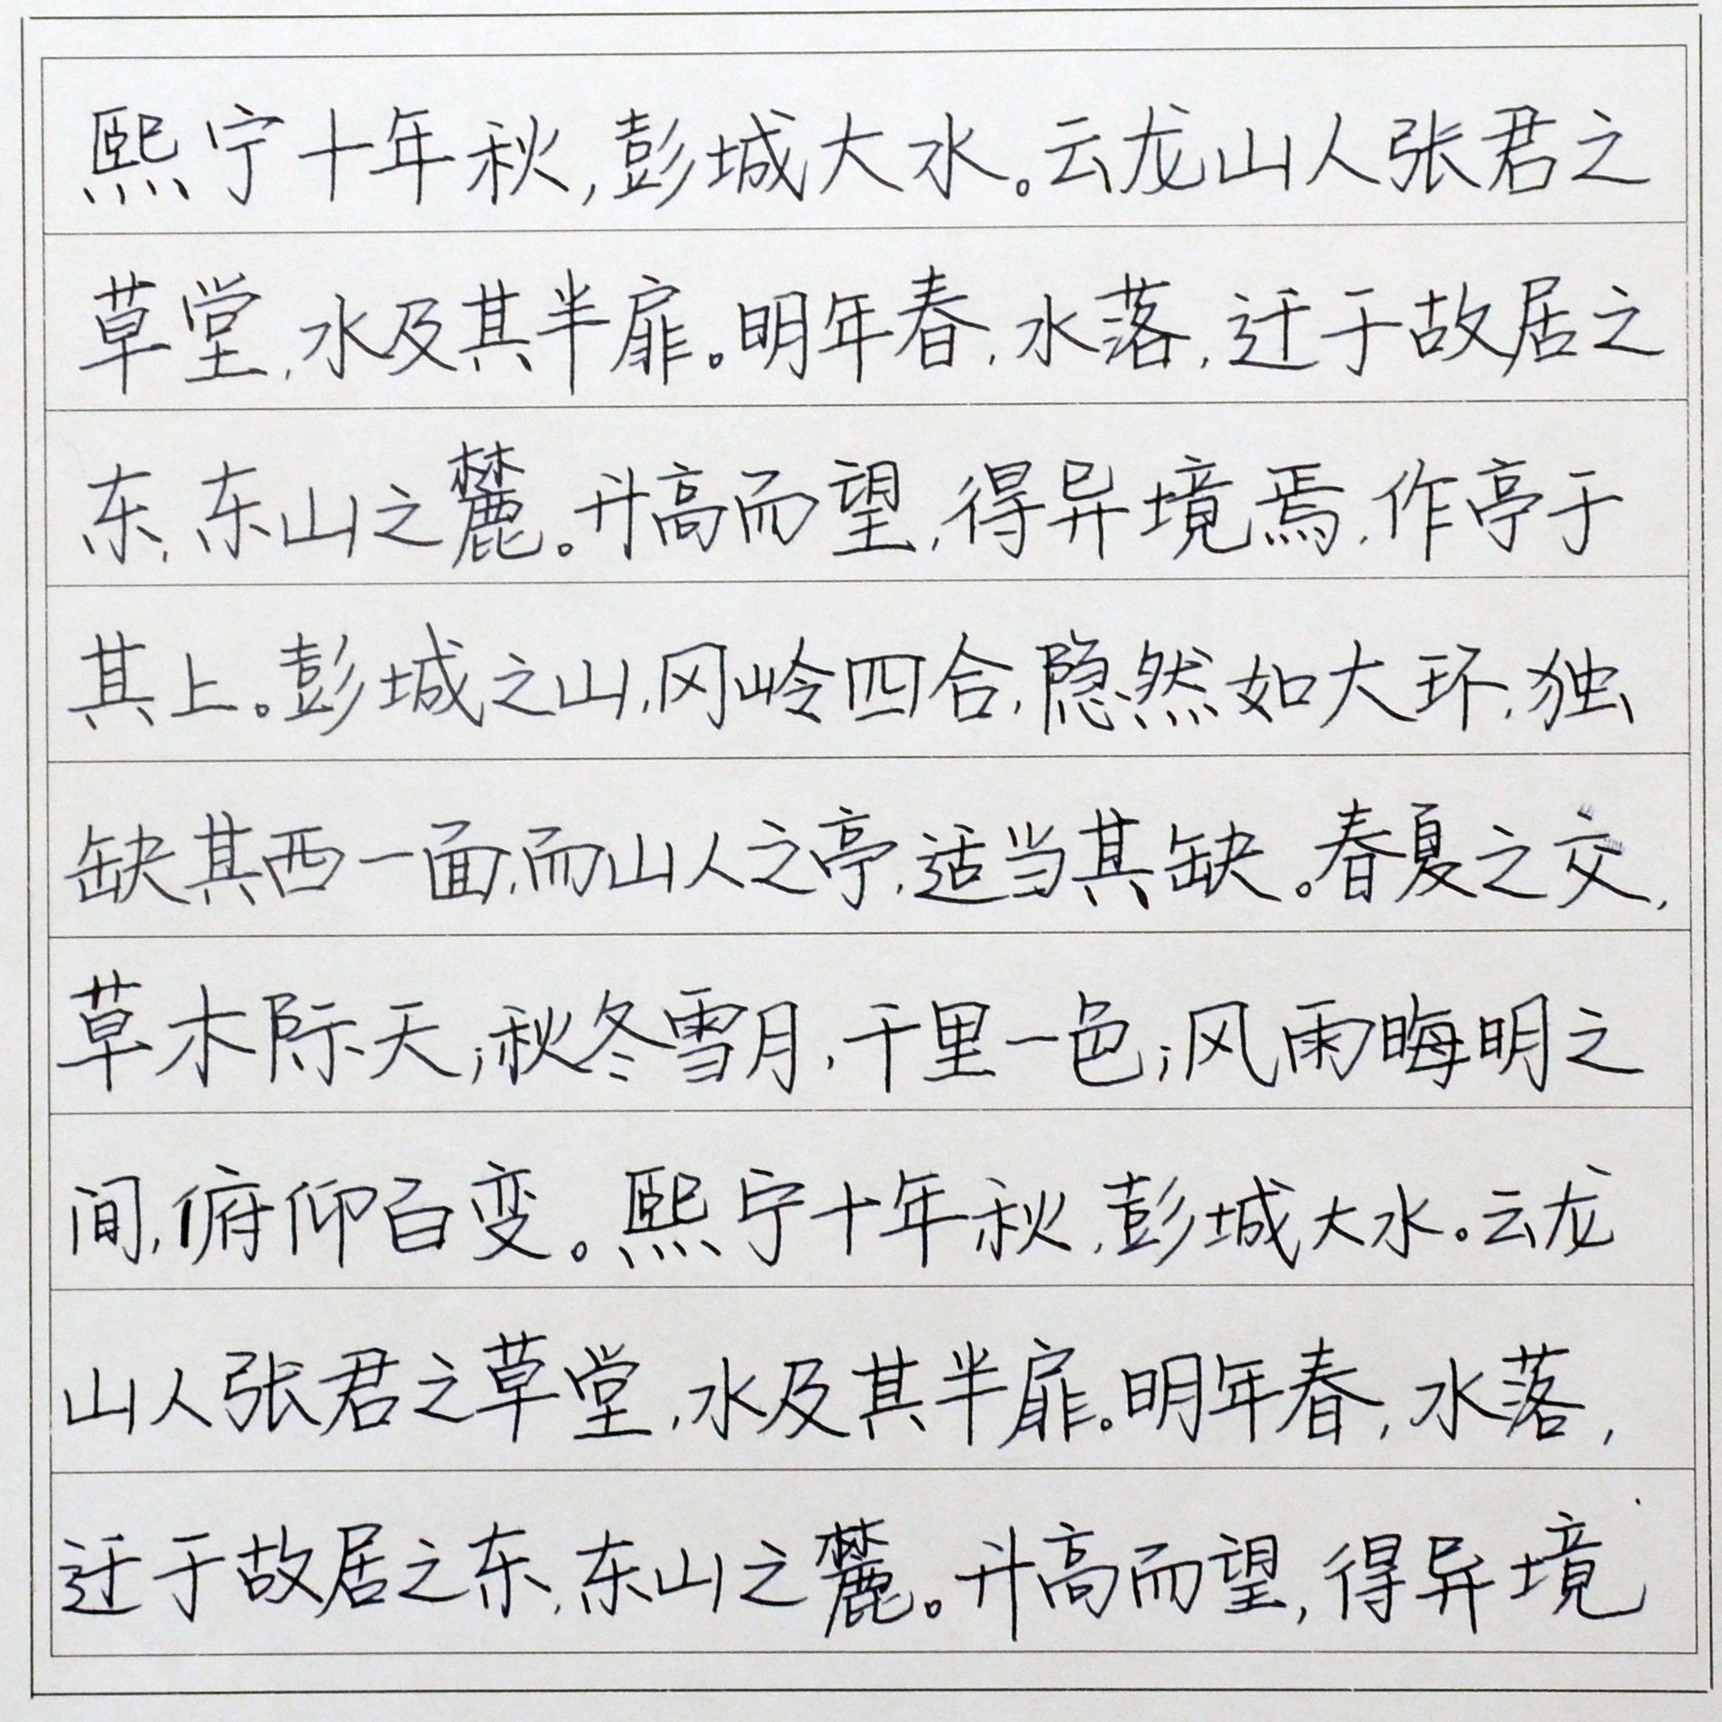 熙宁十年秋,彭城大水。云龙山人张君之
草堂,水及其半扉。明年春,水落,迁于故居之
东,东山之麓。升高而望,得异境焉,作亭于
其上。彭城之山,冈岭四合,隐然如大环,独
缺其西一面,而山人之亭,适当其缺。春夏之交,
草木际天;秋冬雪月,千里一色;风雨晦明之
间,俯仰百变。熙宁十年秋,彭城大水。云龙
山人张君之草堂,水及其半扉。明年春,水落,
迁于故居之东,东山之麓。升高而望,得异境